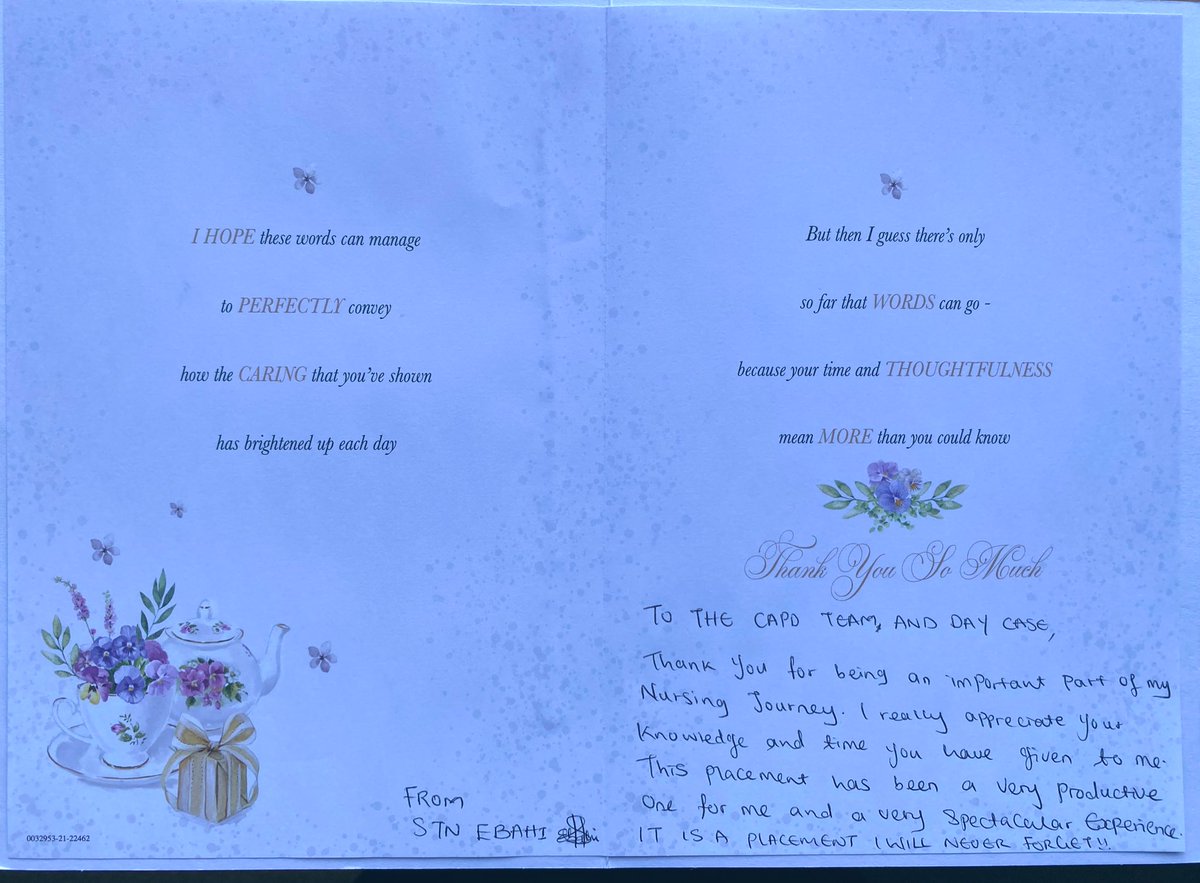 I HOPE these words can manage
to PERFECTLY convey
how the CARING that you've shown
has brightened up each day
0032953-21-22462
FROM
STN EBAHI
But then I guess there's only
so far that WORDS can go -
because your time and THOUGHTFULNESS
mean MORE than you could know
Thank You So Much
TO THE CAPD TEAM, AND DAY CASE,
Thank you for being an important part of my
Nursing Journey. I really appreciate your
Knowledge and time you have given to me.
This placement has been a very productive
One for me and a very Spectacular Experience.
IT IS A PLACEMENT I WILL NEVER FORGET!!